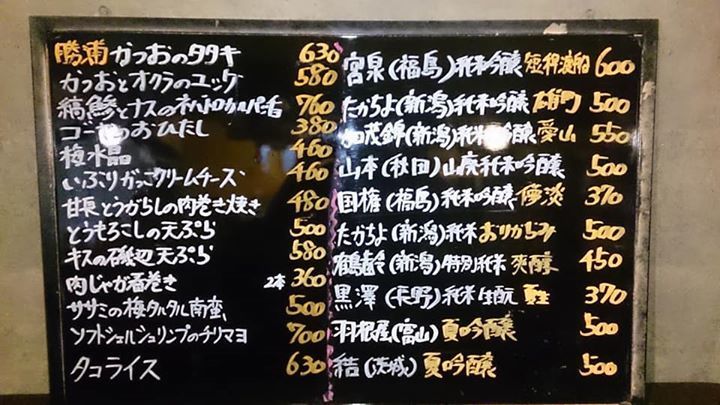 勝浦かつおのタタキ 630
かつおとオクラのユッケ 580
縞鯵とナスの 760
ゴーヤのおひたし 380
梅水晶 460
いぶりがっこクリームチーズ 460
甘長とうがらしの肉巻き焼き 480
とうもろこしの天ぷら 500
キスの磯辺天ぷら 580
肉じゃが春巻き 2本 360
ササミの梅タルタル南蛮 500
ソフトシェルシュリンプのチリマヨ 700
タコライス 630
宮泉(福島)純米吟醸 短稈渡船 600
たかちよ(新潟)純米吟醸 雄町 500
加茂錦(新潟)純米吟醸 愛山 550
山本(秋田)山廃純米吟醸 500
国権(福島)純米吟醸 370
たかちよ(新潟)純米おりがらみ 500
鶴齢(新潟)特別純米 爽醇 450
黒澤(長野)純米生酛 夏生 370
羽根屋(富山)夏吟醸 500
結(茨城)夏吟醸 500